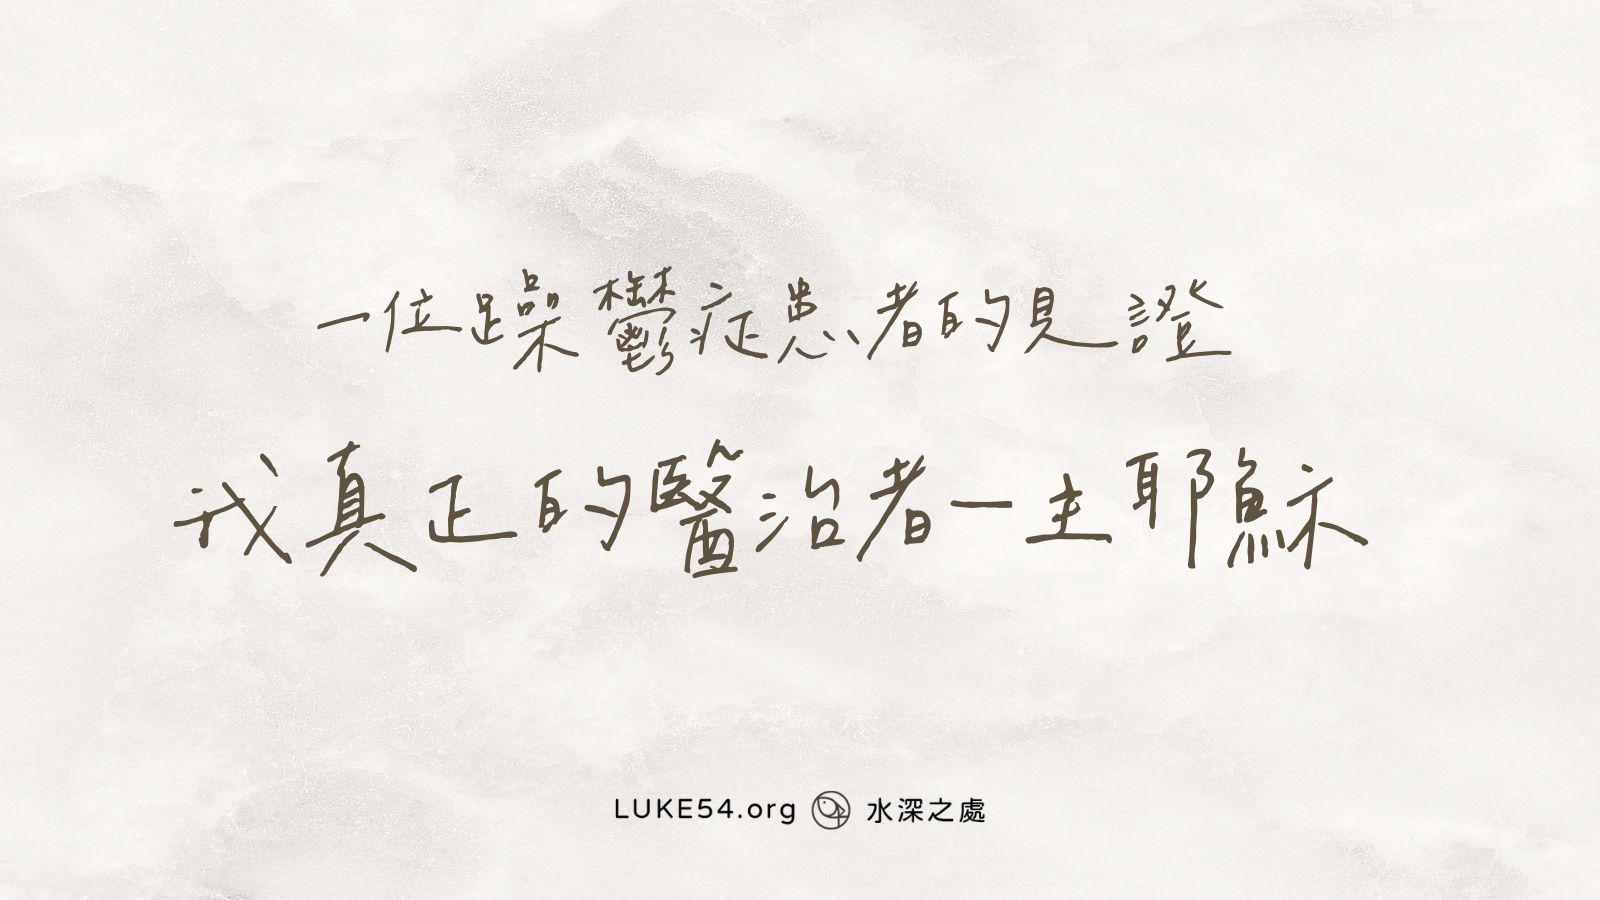 一位躁鬱症患者的見證
我真正的醫治者—主耶穌
LUKE54.org 水深之處